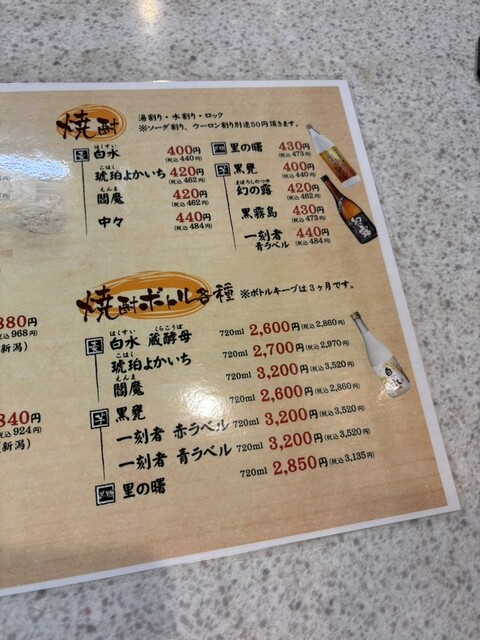 焼酎
湯割り・水割り・ロック
※ソーダ割り、ウーロン割り別途50円頂きます。
麦
はくすい
白水 400円 (税込440円)
こはく
琥珀よかいち 420円 (税込462円)
えんま
閻魔 420円 (税込462円)
中々 440円 (税込484円)
里の曙 430円 (税込473円)
芋
黒甕 400円 (税込440円)
まぼろしのつゆ
幻の露 420円 (税込462円)
黒霧島 430円 (税込473円)
一刻者 440円
青ラベル (税込484円)
焼酎ボトル各種 ※ボトルキープは3ヶ月です。
麦
はくすい くらこうぼ
白水 蔵酵母 720ml 2,600円 (税込2,860円)
こはく
琥珀よかいち 720ml 2,700円 (税込2,970円)
えんま
閻魔 720ml 3,200円 (税込3,520円)
芋
黒甕 720ml 2,600円 (税込2,860円)
一刻者 赤ラベル 720ml 3,200円 (税込3,520円)
一刻者 青ラベル 720ml 3,200円 (税込3,520円)
黒糖
里の曙 720ml 2,850円 (税込3,135円)
880円
税込968円
新潟)
840円
税込924円
新潟)